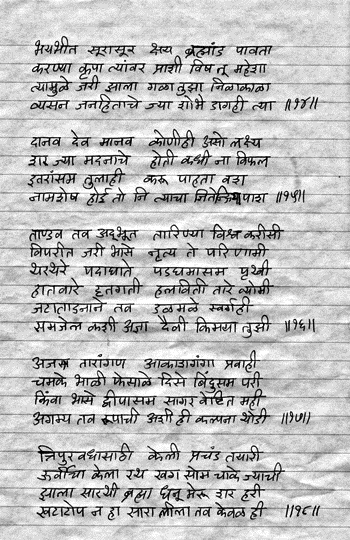 भयभीत सूरासूर क्षय ब्रह्मांड पावता
करण्या कृपा त्यांवर प्राशी विष तू महेशा
त्यामुळे जरी झाला गळा तुझा निळाकाळा
व्यसन जनहिताचे ज्या शोभे डागही त्या ॥१४॥
दानव देव मानव कोणीही असो लक्ष्य
शर ज्या मदनाचे होती कधी ना विफल
इतरांसम तुलाही करू पाहता वश
नामशेष होई तो नि त्याचा जितेंद्रियपाश ॥१५॥
ताण्डव तव अद्भूत तारिण्या विश्व करीसी
विपरीत जरी भासे नृत्य ते परिणामी
थरथरे पदाघाते पडघमासम पृथ्वी
हातवारे द्रुतगती हलविती तारे व्योमी
जटाताडनाने तव डळमळे स्वर्गही
समजेल कशी अज्ञा दैवी किमया तुझी ॥१६॥
अजस्र तारांगण आकाशगंगा प्रवाही
चमके भाळी फेसाळे दिसे बिंदुसम परी
किंवा भासे द्वीपासम सागर वेष्टित मही
अगम्य तव रूपाची अशी ही कल्पना थोडी ॥१७॥
त्रिपुर वधासाठी केली प्रचंड तयारी
ऊर्वीचा केला रथ खग सोम चाके ज्याची
झाला सारथी ब्रह्मा धनू मेरू शर हरी
खटाटोप न हा सारा लीला तव केवळ ही ॥१८॥